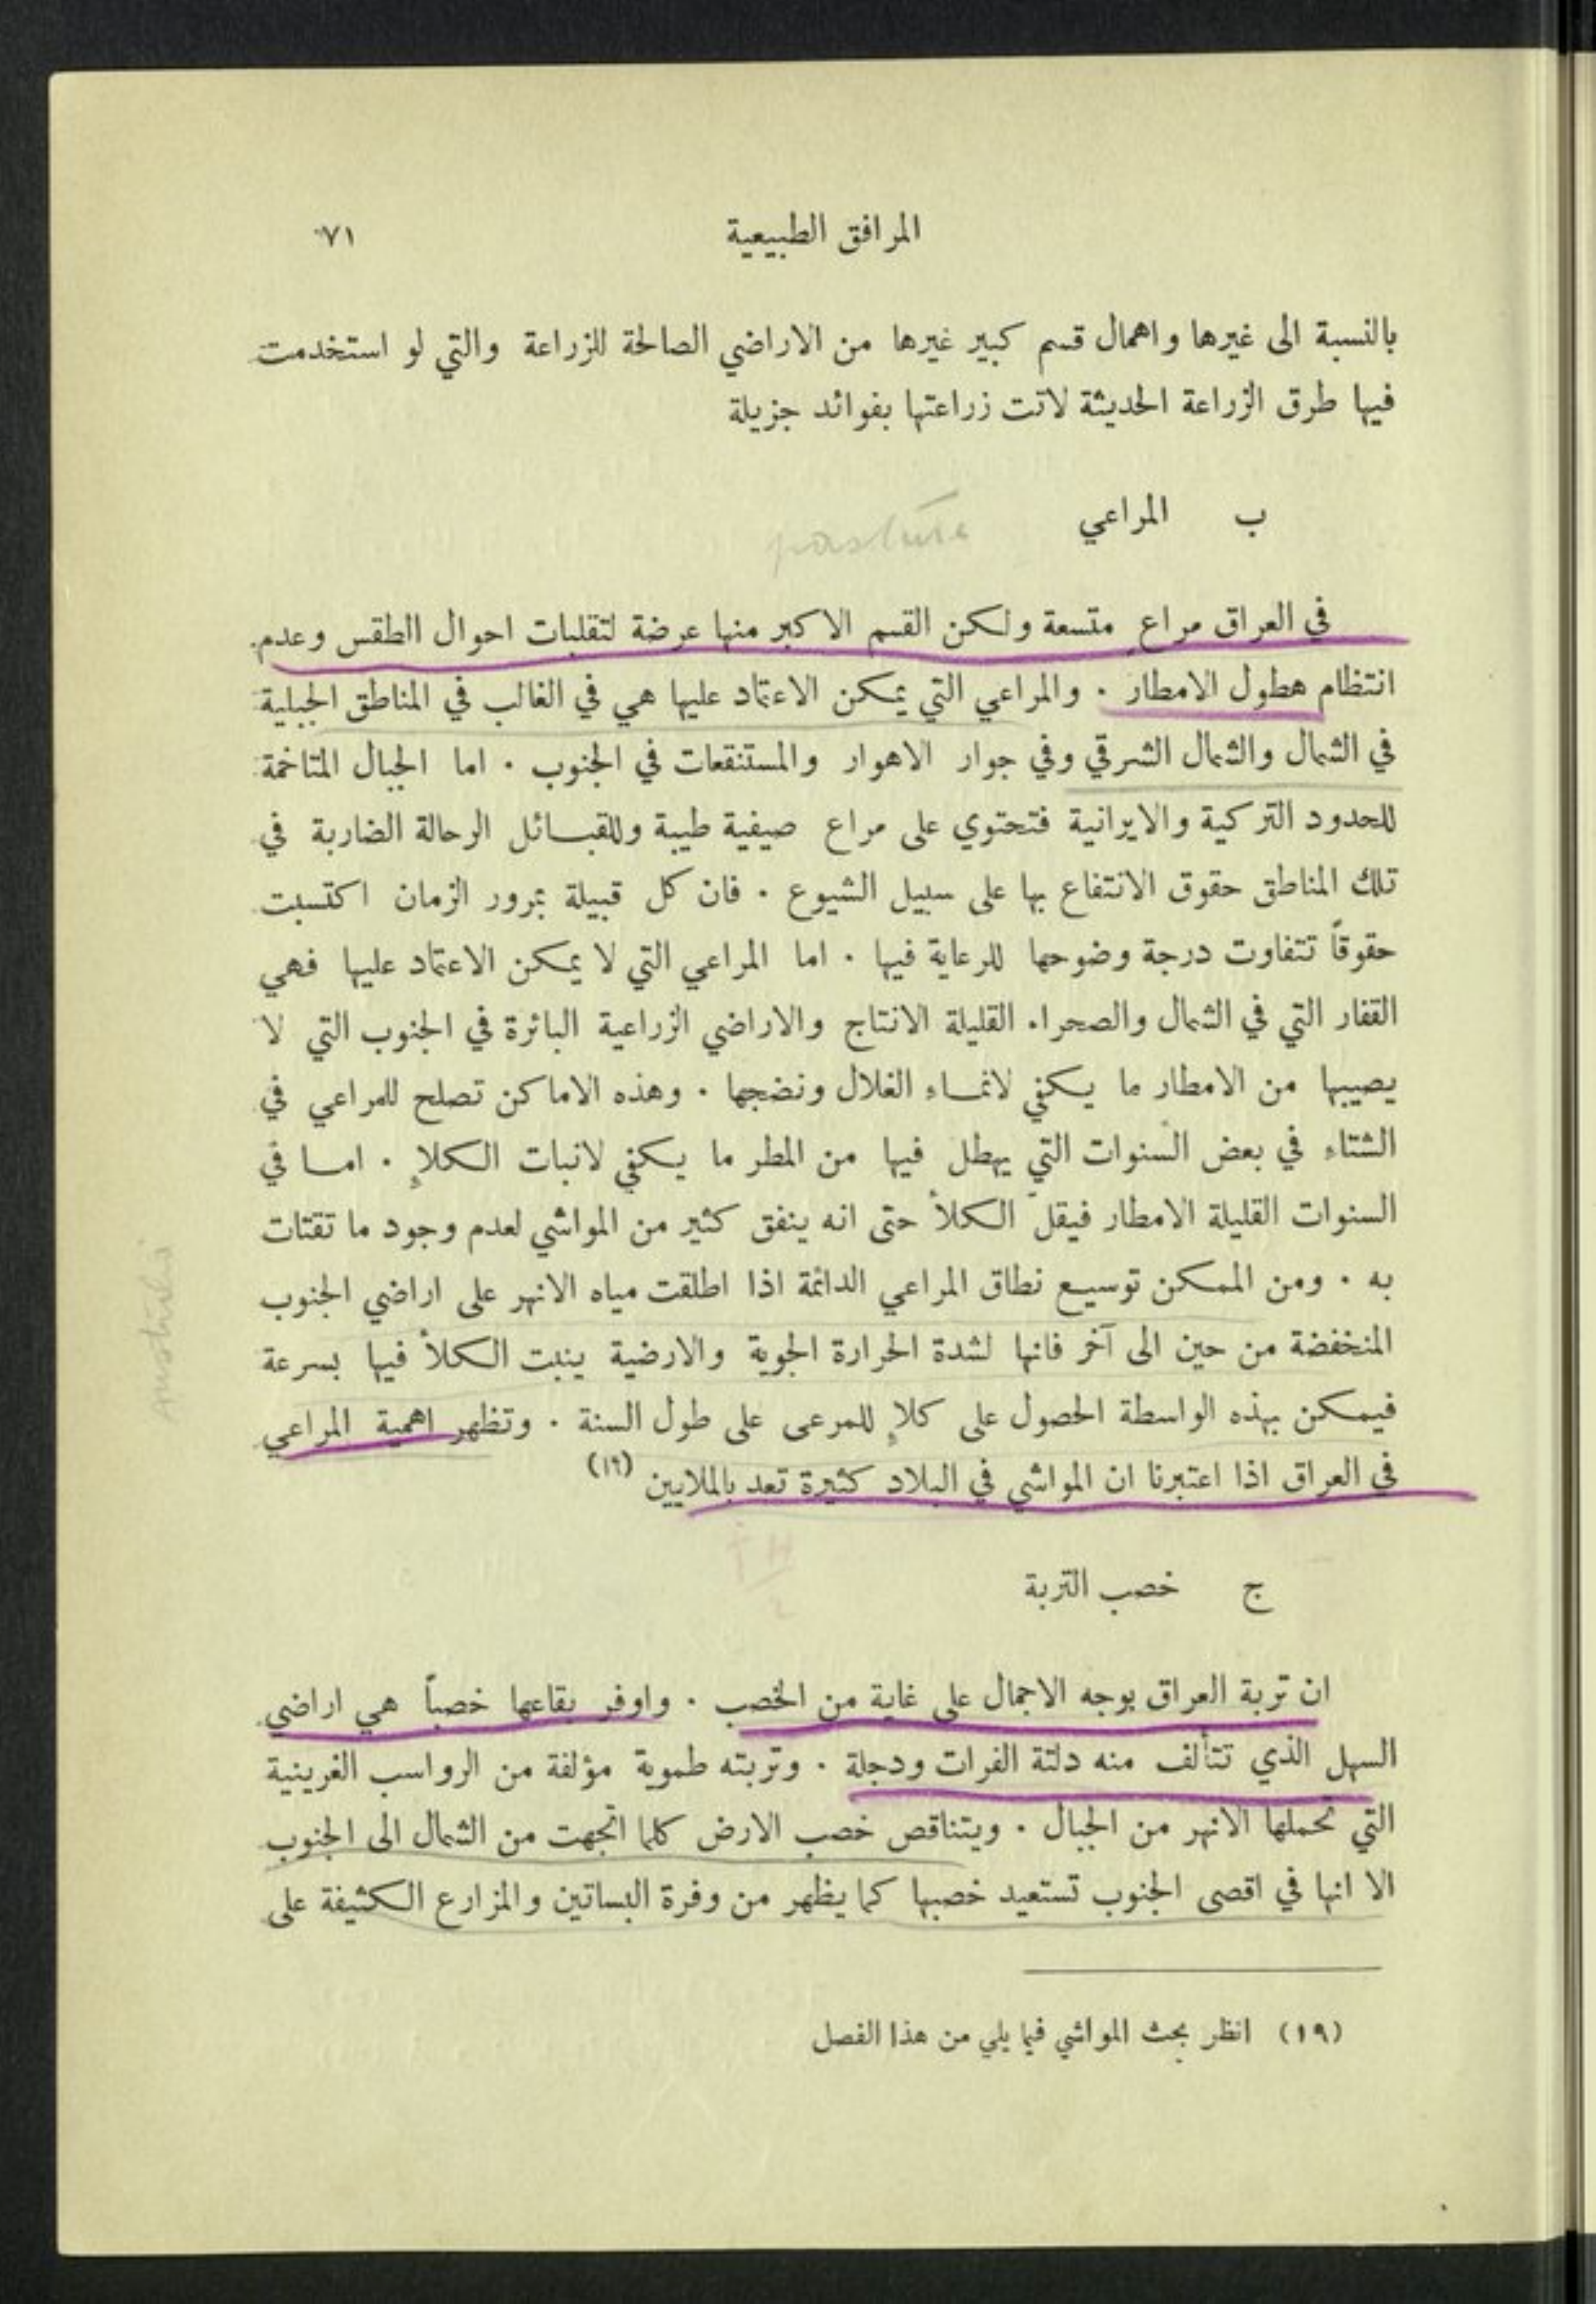 المرافق الطبيعية ٧١
بالنسبة الى غيرها واهمال قسم كبير غيرها من الاراضي الصالحة للزراعة والتي لو استخدمت
فيها طرق الزراعة الحديثة لاتت زراعتها بفوائد جزيلة
ب المراعي pasture
في العراق مراعٍ متسعة ولكن القسم الاكبر منها عرضة لتقلبات احوال الطقس وعدم
انتظام هطول الامطار . والمراعي التي يمكن الاعتماد عليها هي في الغالب في المناطق الجبلية
في الشمال والشمال الشرقي وفي جوار الاهوار والمستنقعات في الجنوب . اما الجبال المتاخمة
للحدود التركية والايرانية فتحتوي على مراع صيفية طيبة وللقبائل الرحالة الضاربة في
تلك المناطق حقوق الانتفاع بها على سبيل الشيوع . فان كل قبيلة بمرور الزمان اكتسبت
حقوقاً تتفاوت درجة وضوحها للرعاية فيها . اما المراعي التي لا يمكن الاعتماد عليها فهي
القفار التي في الشمال والصحراء القليلة الانتاج والاراضي الزراعية البائرة في الجنوب التي لا
يصيبها من الامطار ما يكفي لانماء الغلال ونضجها . وهذه الاماكن تصلح للمراعي في
الشتاء في بعض السنوات التي يهطل فيها من المطر ما يكفي لانبات الكلإ . اما في
السنوات القليلة الامطار فيقلّ الكلأ حتى انه ينفق كثير من المواشي لعدم وجود ما تقتات
به . ومن الممكن توسيع نطاق المراعي الدائمة اذا اطلقت مياه الانهر على اراضي الجنوب
المنخفضة من حين الى آخر فانها لشدة الحرارة الجوية والارضية ينبت الكلأ فيها بسرعة
فيمكن بهذه الواسطة الحصول على كلإٍ للمرعى على طول السنة . وتظهر اهمية المراعي
في العراق اذا اعتبرنا ان المواشي في البلاد كثيرة تعد بالملايين (١٩)
ج خصب التربة
ان تربة العراق بوجه الاجمال على غاية من الخصب . واوفر بقاعها خصباً هي اراضي
السهل الذي تتألف منه دلتة الفرات ودجلة . وتربته طموية مؤلفة من الرواسب الغرينية
التي تحملها الانهر من الجبال . ويتناقص خصب الارض كلما اتجهت من الشمال الى الجنوب
الا انها في اقصى الجنوب تستعيد خصبها كما يظهر من وفرة البساتين والمزارع الكثيفة على
(١٩) انظر بحث المواشي فيما يلي من هذا الفصل